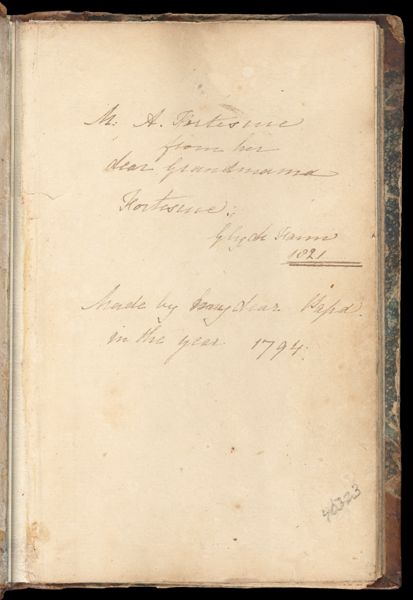 M: A. Fortescue
from her
dear Grandmama
Fortescue:
Farm
1821
Made by my dear Papa.
in the year 1794.
40323